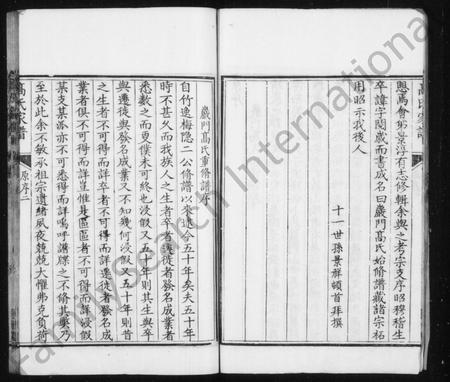 恩爲會第景淳有志修輯余與之考宗支序昭穆稽生
卒諱字閱歲而書成名曰巖門高氏始修譜藏諸宗祏
用昭示我後人
十一世孫景祥頓首拜撰
巖門高氏重修譜序
自竹逸梅隱二公修譜以來迄今五十年矣夫五十年
時不甚久而我族人之生者卒者遷徙者發名成業者
悉數之而更僕未可終也浸假又五十年則其生與卒
與遷徙與發名成業又不知幾何浸假又五十年則昔
之生者不可得而詳卒者不可得而詳遷徙者發名成
業者俱不可得而詳豈惟是區區者不可得而詳浸假
某支某派亦不可悉得而詳嗚呼譜牒之不脩其奧乃
至於此余不敏承祖宗遺緒夙夜兢兢大懼弗克負荷
高氏家譜
原序二
FamilySearch International